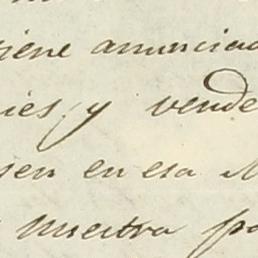 iene anuncia
ies y vende
sen en esa
nuestra pa